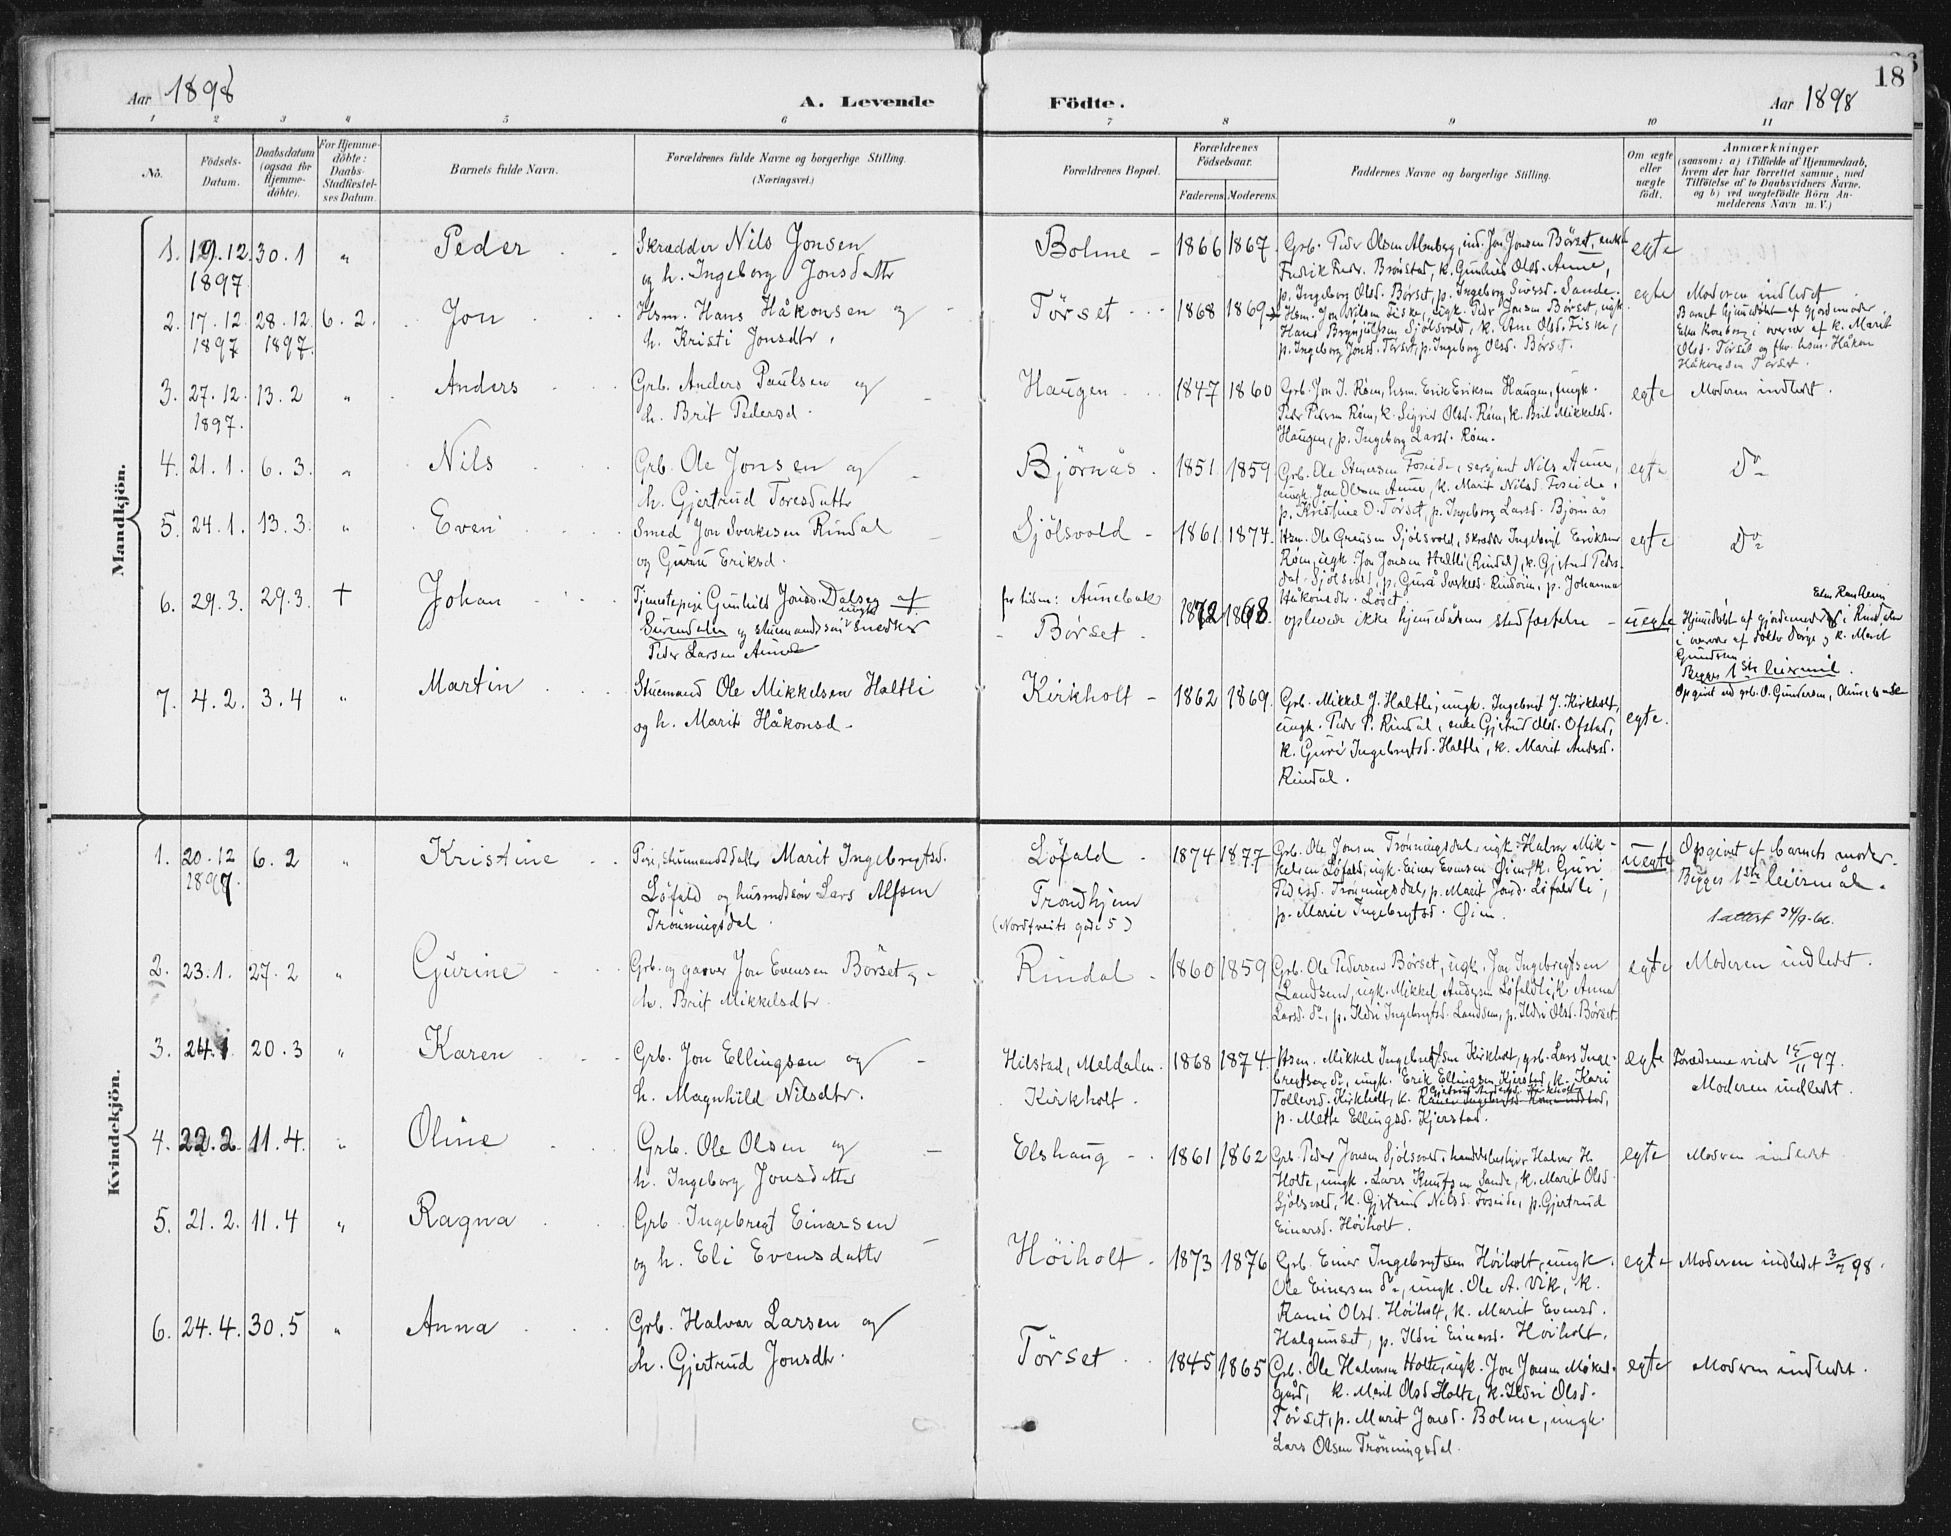 Aar 1898
A. Levende
Födte.
Aar 1898
18
1 2 3 4 5 6 7 8 9 10 11
No.
Födsels-Datum.
Daabsdatum (ogsaa for Hjemme-döbte).
For Hjemme-döbte: Daabs-Stadfæstel-ses Datum.
Barnets fulde Navn.
Forældrenes fulde Navne og borgerlige Stilling. (Næringsvei.)
Forældrenes Bopæl.
Forældrenes Födselsaar.
Faderens. Moderens.
Faddernes Navne og borgerlige Stilling.
Om ægte eller uægte födt.
Anmærkninger
(saasom: a) i Tilfælde af Hjemmedaab,
hvem der har forrettet samme, med
Tilföielse af to Daabsvidners Navne,
og b) ved uægtefödte Börn An-
melderens Navn m. V.)
Mandkjön.
1. 19.12 30.1 " Peder
1897
Skrædder Nils Jonsen
og h. Ingeborg Jonsdattr
Bolme - 1866 1867
Grb. Peder Olsen Almberg, ind. Jon Jonsen Börset, enke
Fredrik Peder. Brönstad, k. Gunhild Olsd. Aune,
p. Ingeborg Olsd. Börset, p. Ingeborg Siversd. Sande.
egte
2. 17.12 28.12 6.2. Jon
1897 1897.
Hsm. Hans Håkonsen og
h. Kristi Jonsdtr.
Törset 1868 1869
Hsm. Jon Nilsen Fiske, ugk. Peder Jonsen Börset, ugk
Hans Brynjulfsen Sjölsvold, k. Ane Olsd. Fiske,
p. Ingeborg Jonsd. Törset, p. Ingeborg Olsd. Börset.
egte
Moderen indledet
Barnet hjemmedöbt af gjordemoder
Elen Kronberg i overvær af k. Marit
Olsd. Törset og fhv. hsm. Håkon
Håkonsen Törset.
3. 27.12 13.2 " Anders
1897.
Grb. Anders Paulsen og
h. Brit Pedersd.
Haugen 1847 1860
Grb. Jon I. Röen, hsm. Erik Eriksen Haugen, ungk.
Peder Pedersen Röen, k. Sigrid Olsd. Röen, k. Brit Mikkelsd.
Haugen, p. Ingeborg Larsd. Röen.
egte
Moderen indledet.
4. 21.1. 6.3. " Nils
Grb. Ole Jonsen og
h. Gjertrud Toresdattr
Bjørnås. 1851 1859
Grb. Ole Steversen Foseide, sersjant Nils Aune,
ungk. Jon Olsen Aune, k. Marit Nilsd. Foseide,
p. Kristine O. Törset, p. Ingeborg Larsd. Bjørnås
egte
Do
5. 24.1. 13.3. " Even
Smed Jon Sverkesen Rindal
og Guru Eriksd.
Sjölsvold - 1861 1874.
Hsm. Ole Sjölsvold, skrædder Ingebrigt Eriksen
Röen, ugk. Jon Jonsen Haltli (Rindal), k. Gjertrud Peders
dat. Sjölsvold, p. Gurå Sverkesd. Rindal, p. Johanna
Håkonsdtr. Löset
egte
Do
6. 29.3. 29.3. † Johan
Tjenestepige Gunhild Jonsd. Dalseg af
Surendalen og stuemandssön ungk. snedker
Peder Larsen Aune
Aunebak
Börset. 1872 1868.
oplevede ikke hjemmedåbens stadfæstelse -
uegte
Hjemmedöbt af gjordemoder i Rindalen
i overvær af k. Marit
Begges 1ste leiermål.
Opgivet ved grb. O. Gundersen, Aunebak
7. 4.2. 3.4 " Martin
Stuemand Ole Mikkelsen Haltli
og h. Marit Håkonsd.
Kirkholt - 1862 1869.
Grb. Mikkel J. Haltli, ungk. Ingebret J. Kirkholt,
ungk. Peder P. Rindal, enke Gjertrud Olsd. Ofstad,
k. Guri Ingebrigtsd. Haltli, k. Marit Andersd.
Rindal.
egte.
Kvindekjön.
1. 20.12 6.2 " Kristine
1897
Pi, stuemandsdattr Marit Ingebregtsd.
Löfald og husmandssön Lars Alfsen
Trönningsdal.
Löfald
Trondhjem
1874 1877
Grb. Ole Jonsen Trönningsdal, ugk. Halvor Mik-
kelsen Löfald, ugk. Einer Evensen Öien, k. Guri
Pedersd. Trönningsdal, p. Marit Jonsd. Löfaldli,
p. Marie Ingebrigtsd. Öien.
uegte
Opgivet af barnets moder.
Begges 1ste leiermål.
1 attest 24/9-66.
2. 23.1. 27.2 " Gurine
Grb. og garver Jon Evensen Börset og
h. Brit Mikkelsdtr.
Rindal - 1860 1859
Grb. Ole Pedersen Börset, ugk. Jon Ingebregtsen
Landsem, ugk. Mikkel Andersen Löfaldli, k. Anna
Larsd. do, p. Ildri Ingebregtsd. Landsem, p. Ildri Olsd. Börset.
egte
Moderen indledet.
3. 24.1 20.3 " Karen
Grb. Jon Ellingsen og
h. Magnhild Nilsdtr.
Hilstad, Meldalen.
Kirkholt.
1868 1874
Hsm. Mikkel Ingebrigtsen Kirkholt, grb. Lars Inge-
bregtsen do, ungk. Erik Ellingsen Kjerstad, k. Kari
Tollevsd. Kirkholt, k.
p. Mette Ellingsd. Kjerstad.
egte
Forældrene viede 15/11 97.
Moderen indledet.
4. 22.2. 11.4. " Oline
Grb. Ole Olsen og
h. Ingeborg Jonsdatter
Elshaug - 1861 1862
Grb. Peder Jonsen Sjölsvold, handelsbestyrer Halvor H.
Holte, ungk. Lars Knutsen Sande, k. Marit Olsd.
Sjölsvold, k. Gjertrud Nilsd. Foseide, p. Gjertrud
Einarsd. Höiholt.
egte
Moderen indledet
5. 21.2. 11.4 " Ragna
Grb. Ingebregt Einarsen
og h. Eli Evensdattr
Höiholt - 1873 1876
Grb. Einer Ingebrigtsen Höiholt, ungk.
Ole Einersen do, ungk. Ole A. Vik, k.
Ranei Olsd. Höiholt, k. Marit Evensd.
Halgunset, p. Ildri Einarsd. Höiholt.
egte
Moderen indledet 3/7 98.
6. 24.4. 30.5 " Anna
Grb. Halvor Larsen og
h. Gjertrud Jonsdtr.
Törset 1845 1865
Grb. Ole Halvorsen Holte, ugk. Jon Jonsen Mokel-
gård, k. Marit Olsd Holte, k. Ildri Olsd.
Törset, p. Marit Jonsd. Bolme, ungk.
Lars Olsen Trönningsdal.
egte
Moderen indledet.